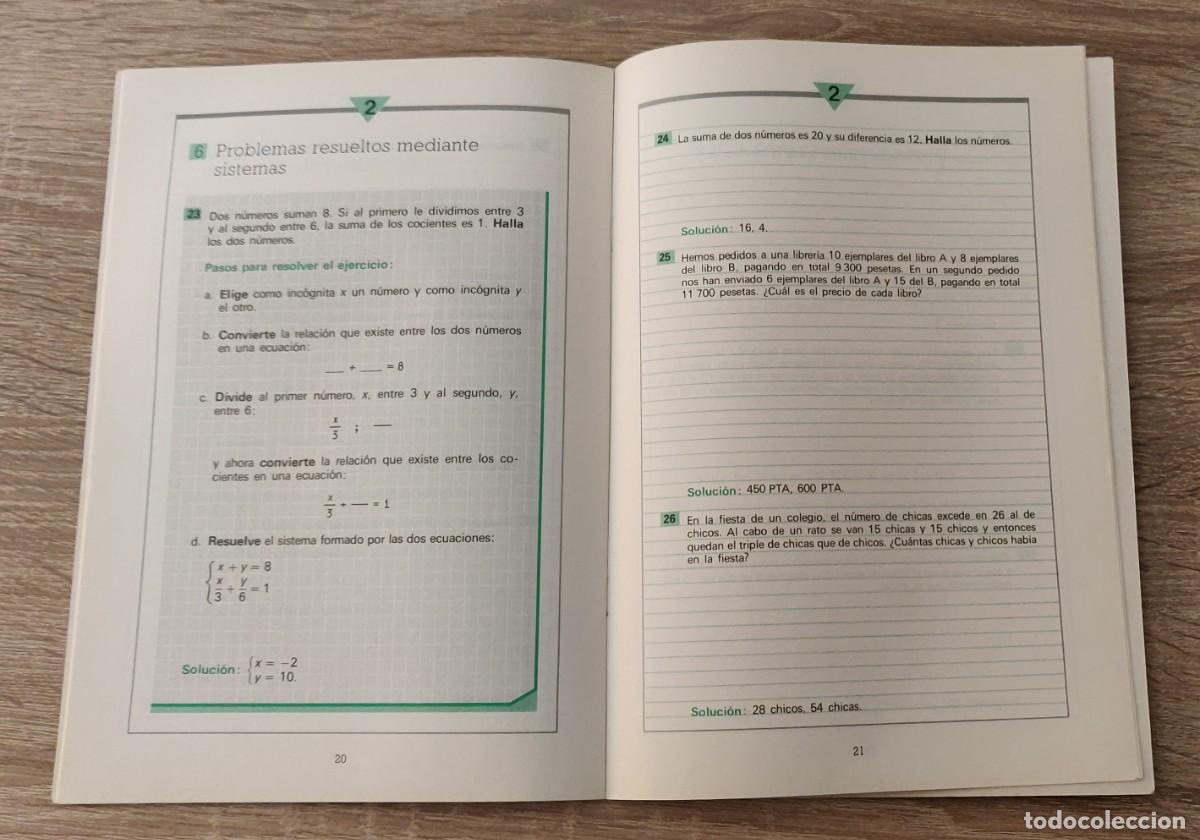 2
6 Problemas resueltos mediante
sistemas
23 Dos números suman 8. Si al primero le dividimos entre 3
y al segundo entre 6, la suma de los cocientes es 1. Halla
los dos números.
Pasos para resolver el ejercicio:
a. Elige como incógnita x un número y como incógnita y
el otro.
b. Convierte la relación que existe entre los dos números
en una ecuación:
___ + ___ = 8
c. Divide al primer número, x, entre 3 y al segundo, y,
entre 6:
x/3 ; —
y ahora convierte la relación que existe entre los co-
cientes en una ecuación:
x/3 + — = 1
d. Resuelve el sistema formado por las dos ecuaciones:
x + y = 8
x/3 + y/6 = 1
Solución: x = -2
y = 10.
20
2
24 La suma de dos números es 20 y su diferencia es 12. Halla los números.
Solución: 16, 4.
25 Hemos pedidos a una librería 10 ejemplares del libro A y 8 ejemplares
del libro B, pagando en total 9 300 pesetas. En un segundo pedido
nos han enviado 6 ejemplares del libro A y 15 del B, pagando en total
11 700 pesetas. ¿Cuál es el precio de cada libro?
Solución: 450 PTA, 600 PTA.
26 En la fiesta de un colegio, el número de chicas excede en 26 al de
chicos. Al cabo de un rato se van 15 chicas y 15 chicos y entonces
quedan el triple de chicas que de chicos. ¿Cuántas chicas y chicos había
en la fiesta?
Solución: 28 chicos, 54 chicas.
21
todocoleccion